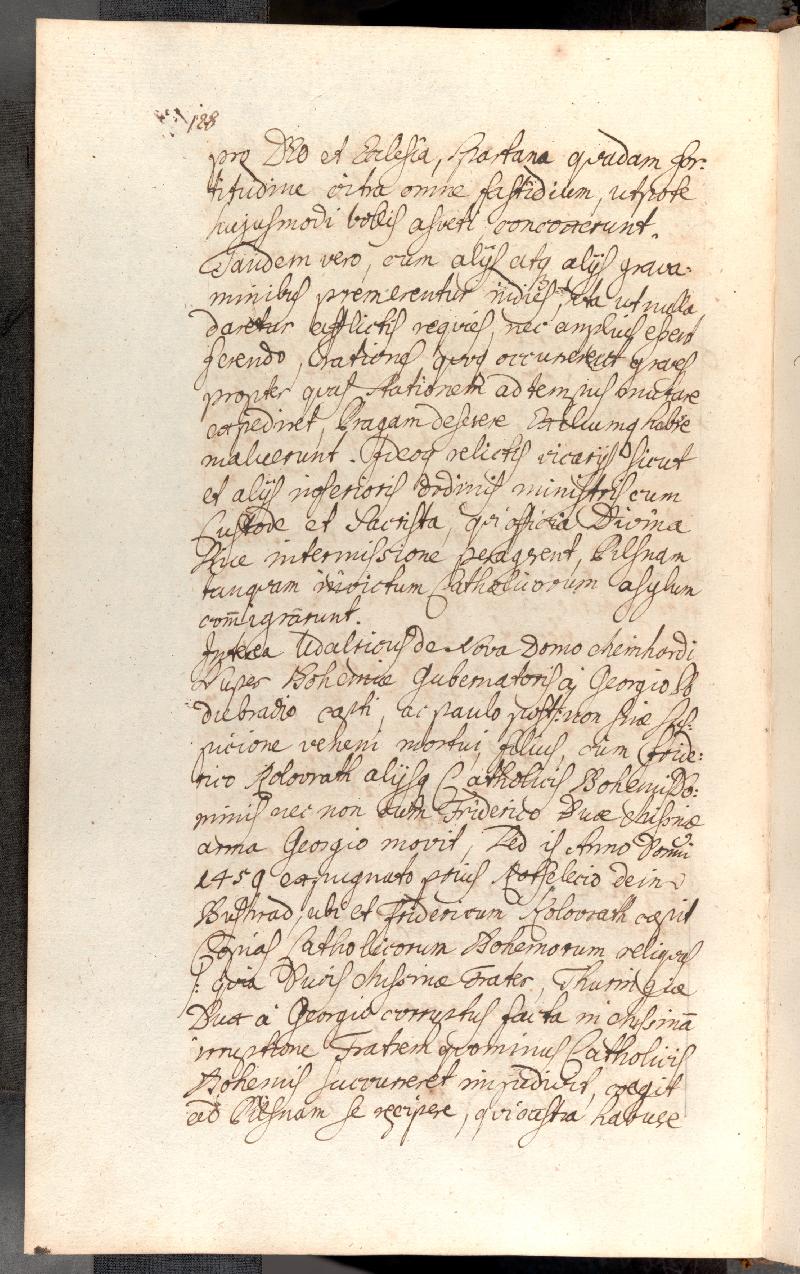 128
pro Deo et Ecclesia, Spartana quadam for:
titudine citra omne fastidium, utpote
hujusmodi bolis asveti concoxerunt.
Tandem vero, cum alijs atq alijs grava:
minibus premerentur indies, ita ut nulla
daretur afflictis requies, nec amplius essent
ferendo, rationes quoq occurrerent graves
propter quas stationem ad tempus mutare
expediret, Pragam deserere Exiliumq habere
maluerunt. Ideoq relictis vicarijs sicut
et alijs inferioris ordinis ministris cum
Custode et Sacrista, qui officia Divina
sine intermissione peragerent, Pilsnam
tanquam invictum Catholicorum asylum
com̄igrārunt.
Interea Udalricus de Nova Domo Meinhardi
Nuper Bohemiæ Gubernatoris à Georgio Po
diebradio capti, ac paulo post non sine sus:
picione veneni mortui, filius, cum Fride:
rico Kolovrath alijsq Catholicis Bohemis Do:
minis nec non cum Friderico Duce Misniæ
arma Georgio movit, Sed is Anno Domini
1459 expugnato prius dein
ubi et Fridericum Kolovrath cæpit
Copias Catholicorum Bohemorum reliquas
/: quia Ducis Misniæ Frater, Thuringiæ
Dux à Georgio corruptus facta in Misniā
irruptione Fratrem quominus Catholicis
Bohemis succurreret impedivit, coegit
ad Pilsnam se recipere, qui castra habuere